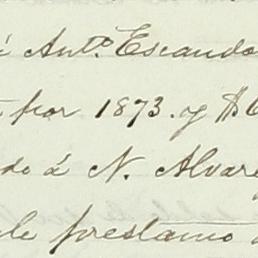 á Anto. Escando
por 1873. y
do á N. Alvare
le prestamo